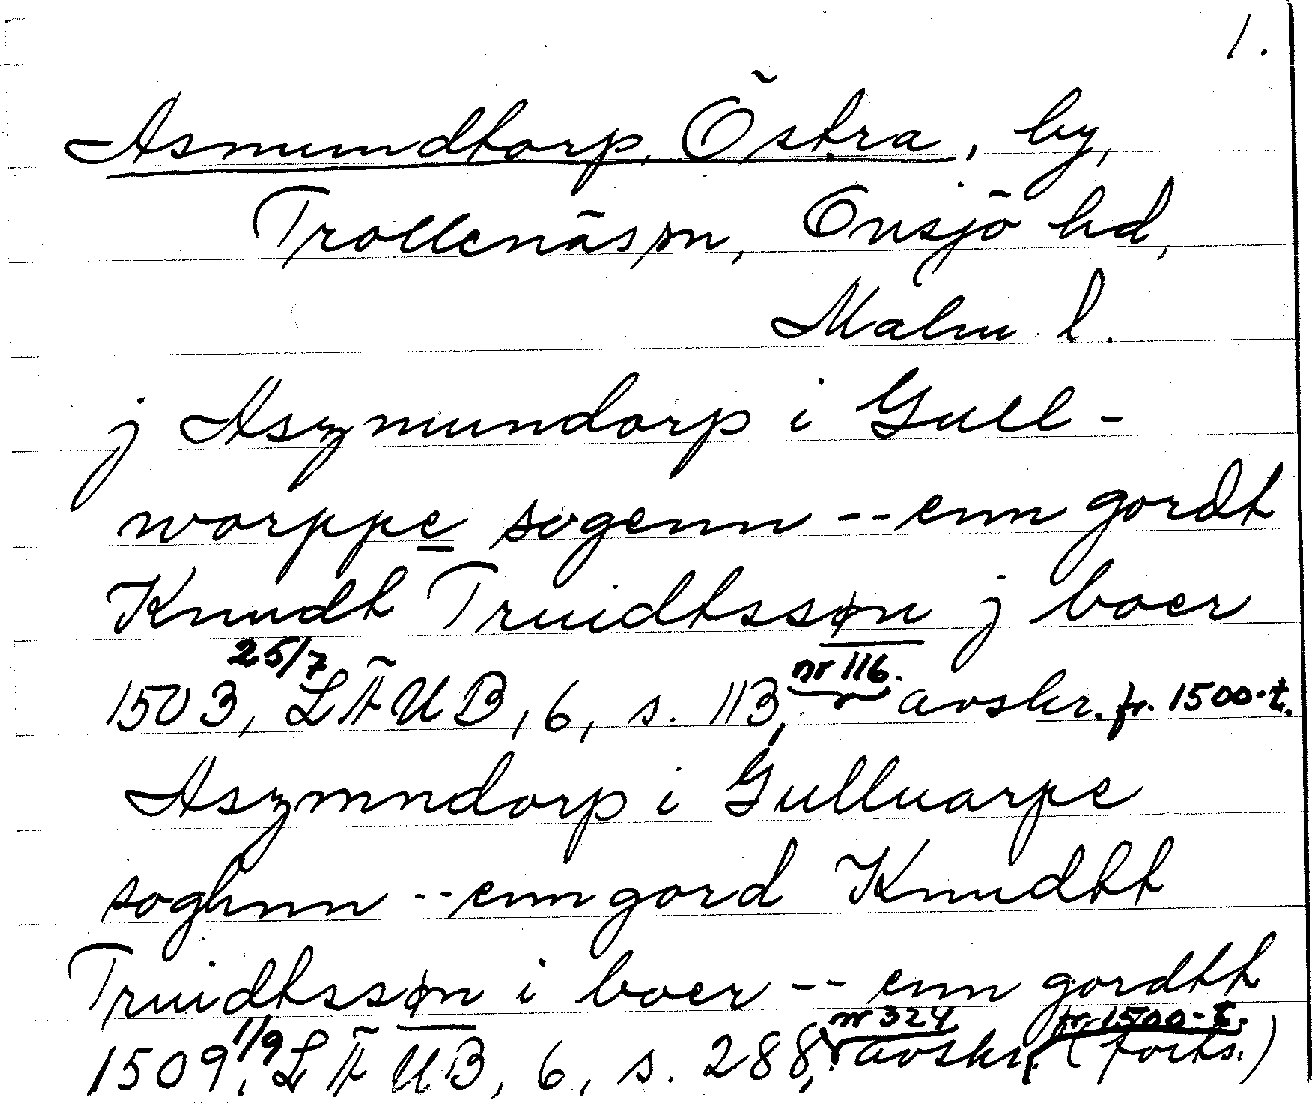 1.
Asmundtorp, Östra, by,
Trollenäs sn, Onsjö hd,
Malm. l.
j Aszmundorp i Gull-
worppe sogenn -- enn gordt
Knudt Truidtssøn j boer
1503, 25/7 LÄUB, 6, s. 113, nr 116. avskr. fr. 1500-t.
Aszmndorp i Gulluarpe
soghnn -- enn gord Knudtt
Truidtssøn i boer -- enn gordtt
1509, 1/9 LÄUB, 6, s. 288, nr 324 avskr. fr. 1500-t. (forts.)